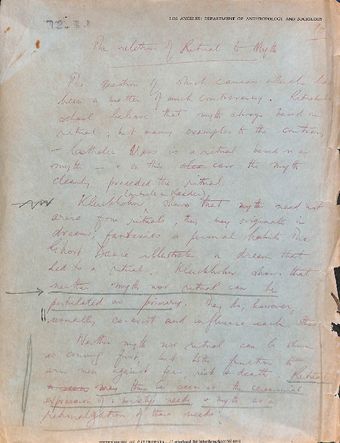 LOS ANGELES: DEPARTMENT OF ANTHROPOLOGY AND SOCIOLOGY
The relation of Ritual to Myth
The question of which causes which has
been a matter of much controversy. Ritualist
school believe that myth always based on
ritual, but many examples to the contrary
- Catholic Mass is a ritual based on a
myth - in this case the myth
clearly preceded the ritual.
Kluckhohn shows that myth need not
arise from ritual, they may originate in
dream, fantasies a personal habit. The
Ghost Dance illustrate a dream that
led to a ritual. Kluckhohn shows that
neither myth nor ritual can be
postulated as primary. They do, however,
usually co-exist and influence each other.
Neither myth nor ritual can be shown
as coming first, but both function to
arm men against fear risk & death. Ritual
to seen as the ceremonial
expression of society needs & myth as a
rationalization of these needs.